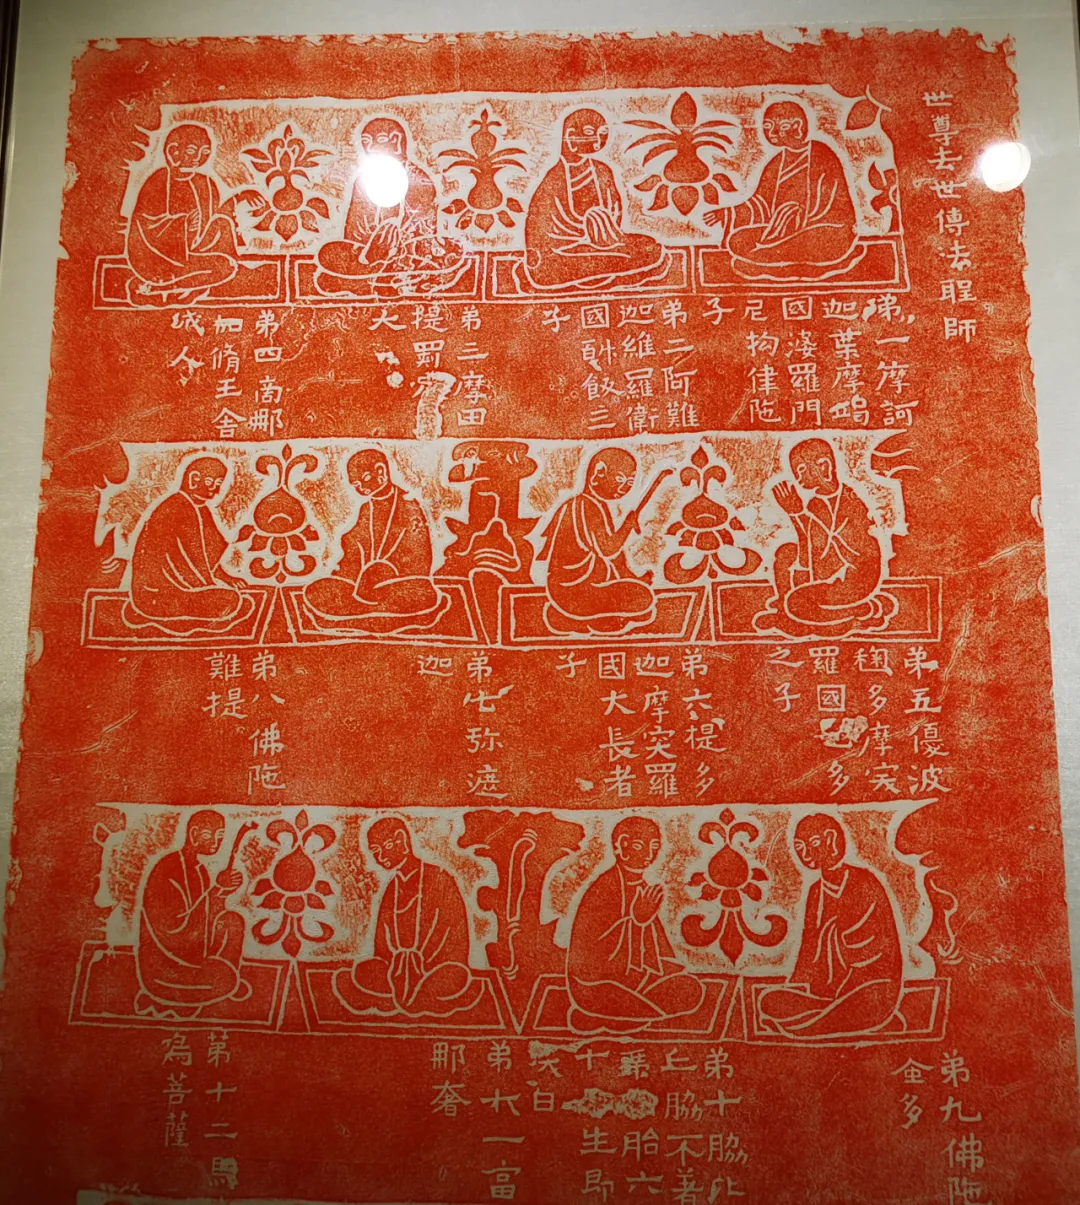 世尊去世傳法聖師
弟一摩訶
迦葉摩竭
國婆羅門
尼拘律陁
子
弟二阿難
迦維羅衛
國斛飯王
子
弟三摩田
提罽宾
人
弟四商那
和脩王舍
城人
弟五優波
毱多摩突
羅國多
之子
弟六提多
迦摩突羅
國大長者
子
弟七弥遮
迦
弟八佛陁
難提
弟九佛陁
蜜多
弟十脇比
丘脇不著
胎六
十生即
白
弟十一富
那奢
第十二馬
鳴菩薩